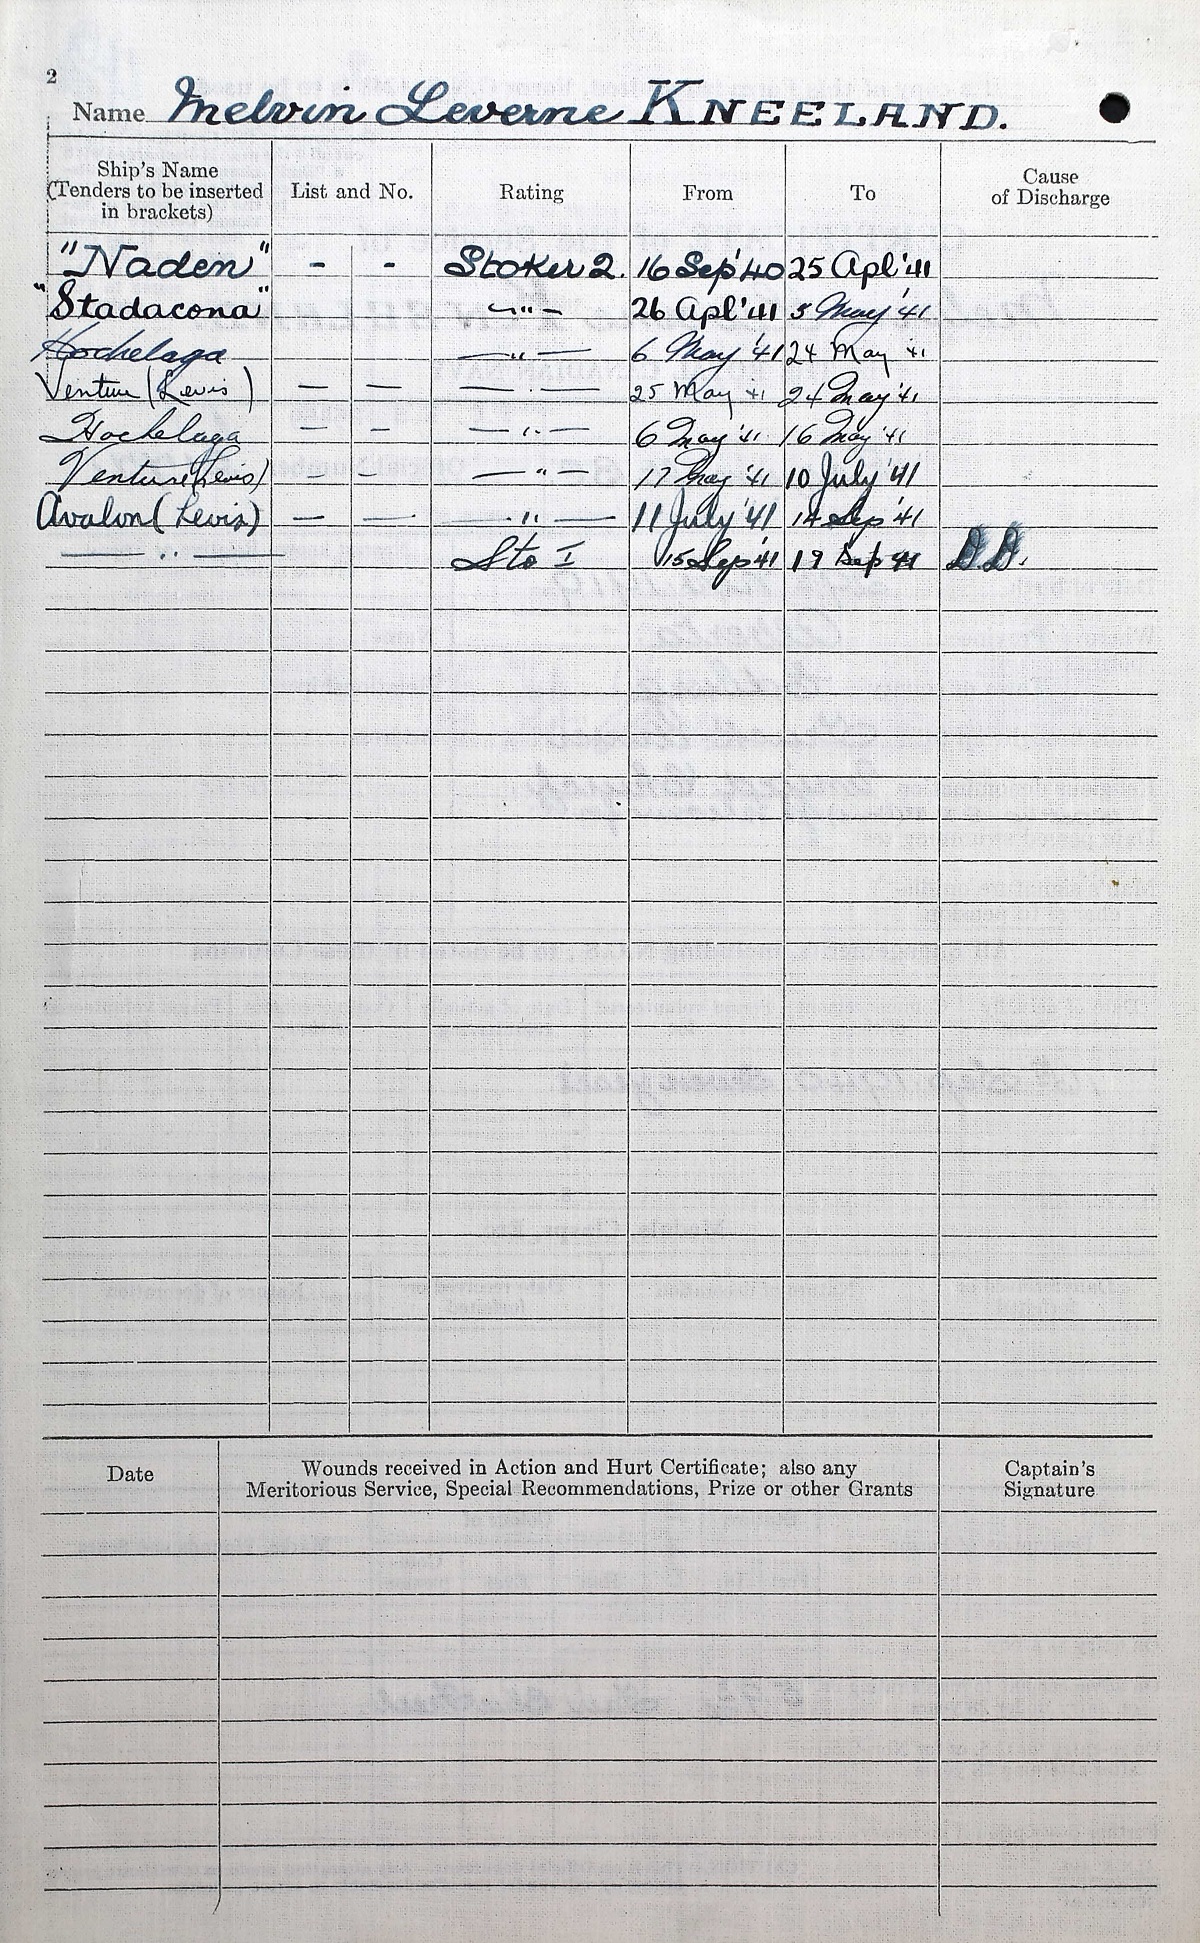 2
Name Melvin Leverne KNEELAND.
Ship's Name (Tenders to be inserted in brackets) List and No. Rating From To Cause of Discharge
"Naden" - - Stoker 2. 16 Sep '40 25 Apl '41
"Stadacona" - " - 26 Apl '41 5 May '41
Hochelaga — " — 6 May '41 24 May '41
Venture (Levis) — — — " — 25 May '41 24 May '41
Hochelaga — — — " — 6 May '41 16 May '41
Venture (Levis) — — — " — 17 May '41 10 July '41
Avalon (Levis) — — — " — 11 July '41 14 Sep '41
— " — Sto I 15 Sep '41 19 Sep '41 D.D.
Date Wounds received in Action and Hurt Certificate; also any Meritorious Service, Special Recommendations, Prize or other Grants Captain's Signature